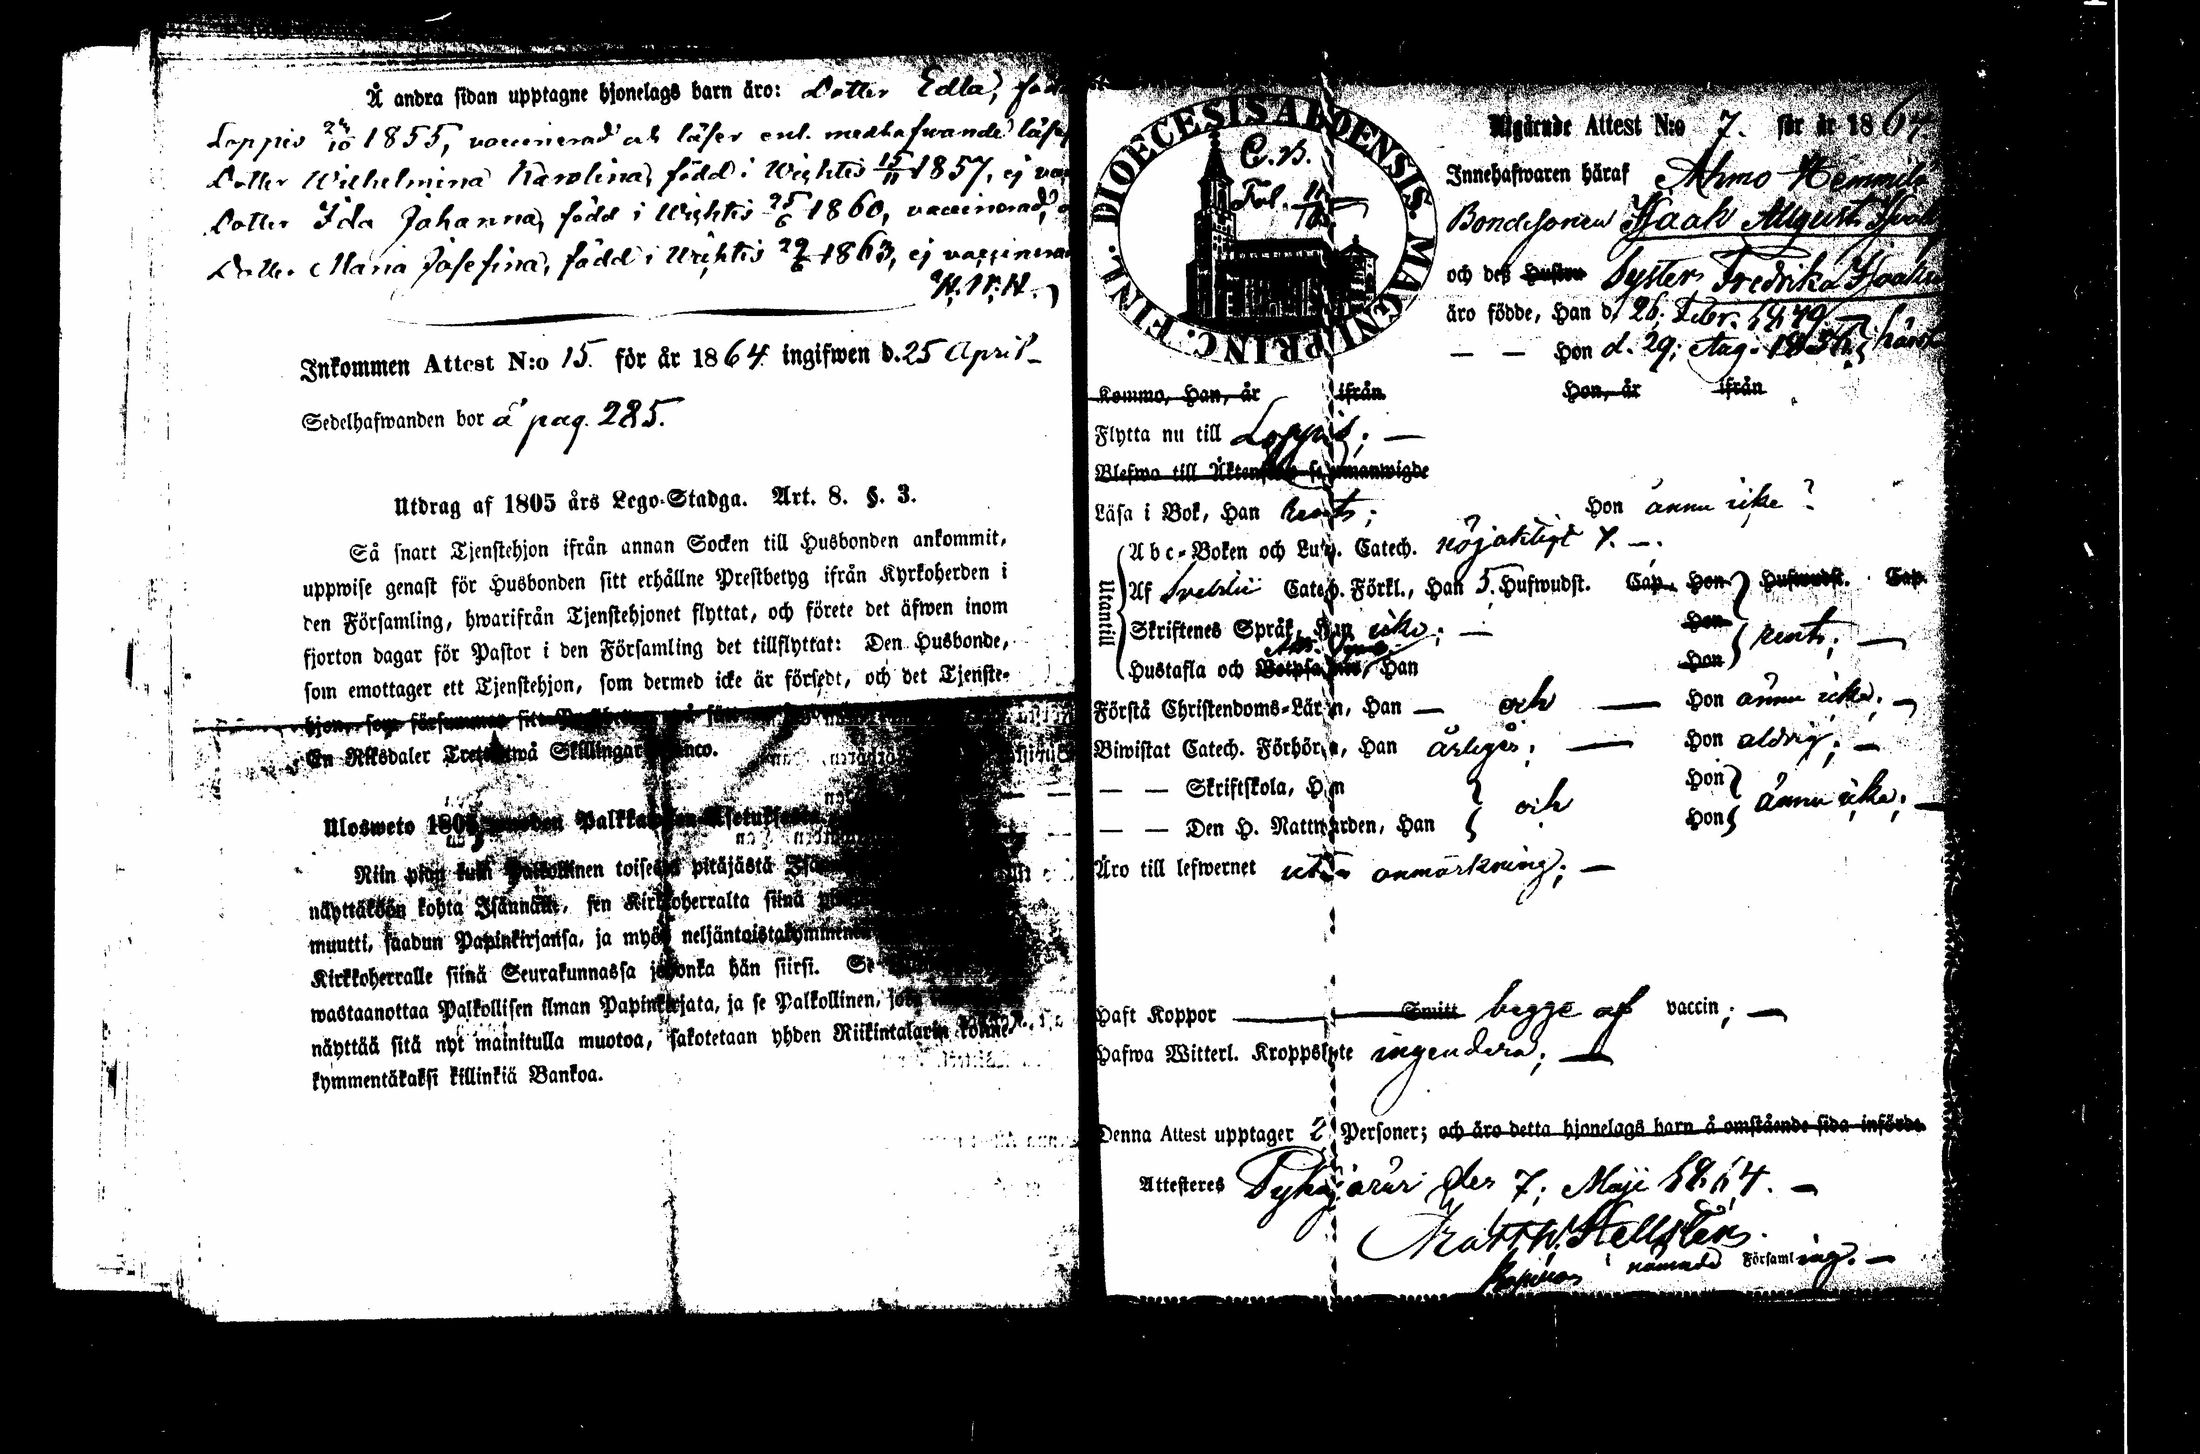 Å andra sidan upptagne hjonelags barn äro: Dotter Edla, född
Loppis 24/10 1855, vaccinerad och läser enl. medhafwande läse
Dotter Wilhelmina Karolina, född i Wichtis 15/11 1857, ej vac
Dotter Ida Johanna, född i Wichtis 25/6 1860, vaccinerad,
Dotter Maria Josefina, född i Wichtis 29/6 1863, ej vaccinerad
Inkommen Attest N:o 15. för år 1864 ingifwen d. 25 April
Sedelhafwanden bor å pag. 285.
Utdrag af 1805 års Lego-Stadga. Art. 8. §. 3.
Så snart Tjenstehjon ifrån annan Socken till Husbonden ankommit,
uppwise genast för Husbonden sitt erhållne Prestbetyg ifrån Kyrkoherden i
den Församling, hwarifrån Tjenstehjonet flyttat, och förete det äfwen inom
fjorton dagar för Pastor i den Församling det tillflyttat: Den Husbonde,
som emottager ett Tjenstehjon, som dermed icke är försedt, och det Tjenste-
hjon, som försummar sitt
En Riksdaler Trettiotwå Skillingar Banco.
Ulosweto 1805 wuoden Palkkawäen Asetuksesta
Niin pian kuin Palkollinen toisesta pitäjästä
näyttäköön kohta Isännälle, sen Kirkkoherralta siinä
muutti, saadun Papinkirjansa, ja myös neljäntoistakymmenen
Kirkkoherralle siinä Seurakunnassa johonka hän siirsi. Se
wastaanottaa Palkollisen ilman Papinkirjata, ja se Palkollinen, joka
näyttää sitä nyt mainitulla muotoa, sakotetaan yhden Riikintalarin kolme-
kymmentäkaksi killinkiä Bankoa.
DIOECESIS ABOENSIS. MAGNI PRINC. FINL.
C.B.
Fol.
Utgående Attest N:o 7. för år 1864
Innehafwaren häraf Ahmo Hemmilä
Bondesonen Isaak August Isaks
och des Hustru Syster Fredrika Isaks
äro födde, Han d. 26. Febr. 1849
— — Hon d. 29; Aug. 1857
Komme, Han, år ifrån Hon, år ifrån
Flytta nu till Loppis; —
Blefwo till Äktenskap sammanwigde
Läsa i Bok, Han rent; Hon ännu icke
Utantill
Abc-Boken och Luth. Catech. nöjaktigt
Af Svebilii Catech. Förkl., Han 5. Hufwudst. Cap. Hon Hufwudst. Cap.
Skriftenes Språk, Han icke; — Hon rent; —
Hustafla och Botpsalmer, Han Hon
Förstå Christendoms-Läran, Han — och — Hon ännu icke; —
Biwistat Catech. Förhören, Han årligen; — Hon aldrig; —
— — Skriftskola, Han Hon
— — Den H. Nattwarden, Han och Hon ännu icke; —
Äro till lefwernet utan anmärkning; —
Haft Koppor Smitt begge af vaccin; —
Hafwa Witterl. Kroppslyte ingendera; —
Denna Attest upptager 2 Personer; och äro detta hjonelags barn å omstående sida införde
Attesteres Pyhäjärvi den 7; Maji 1864. —
Matth. Hellstén
i nämnde Församling. —